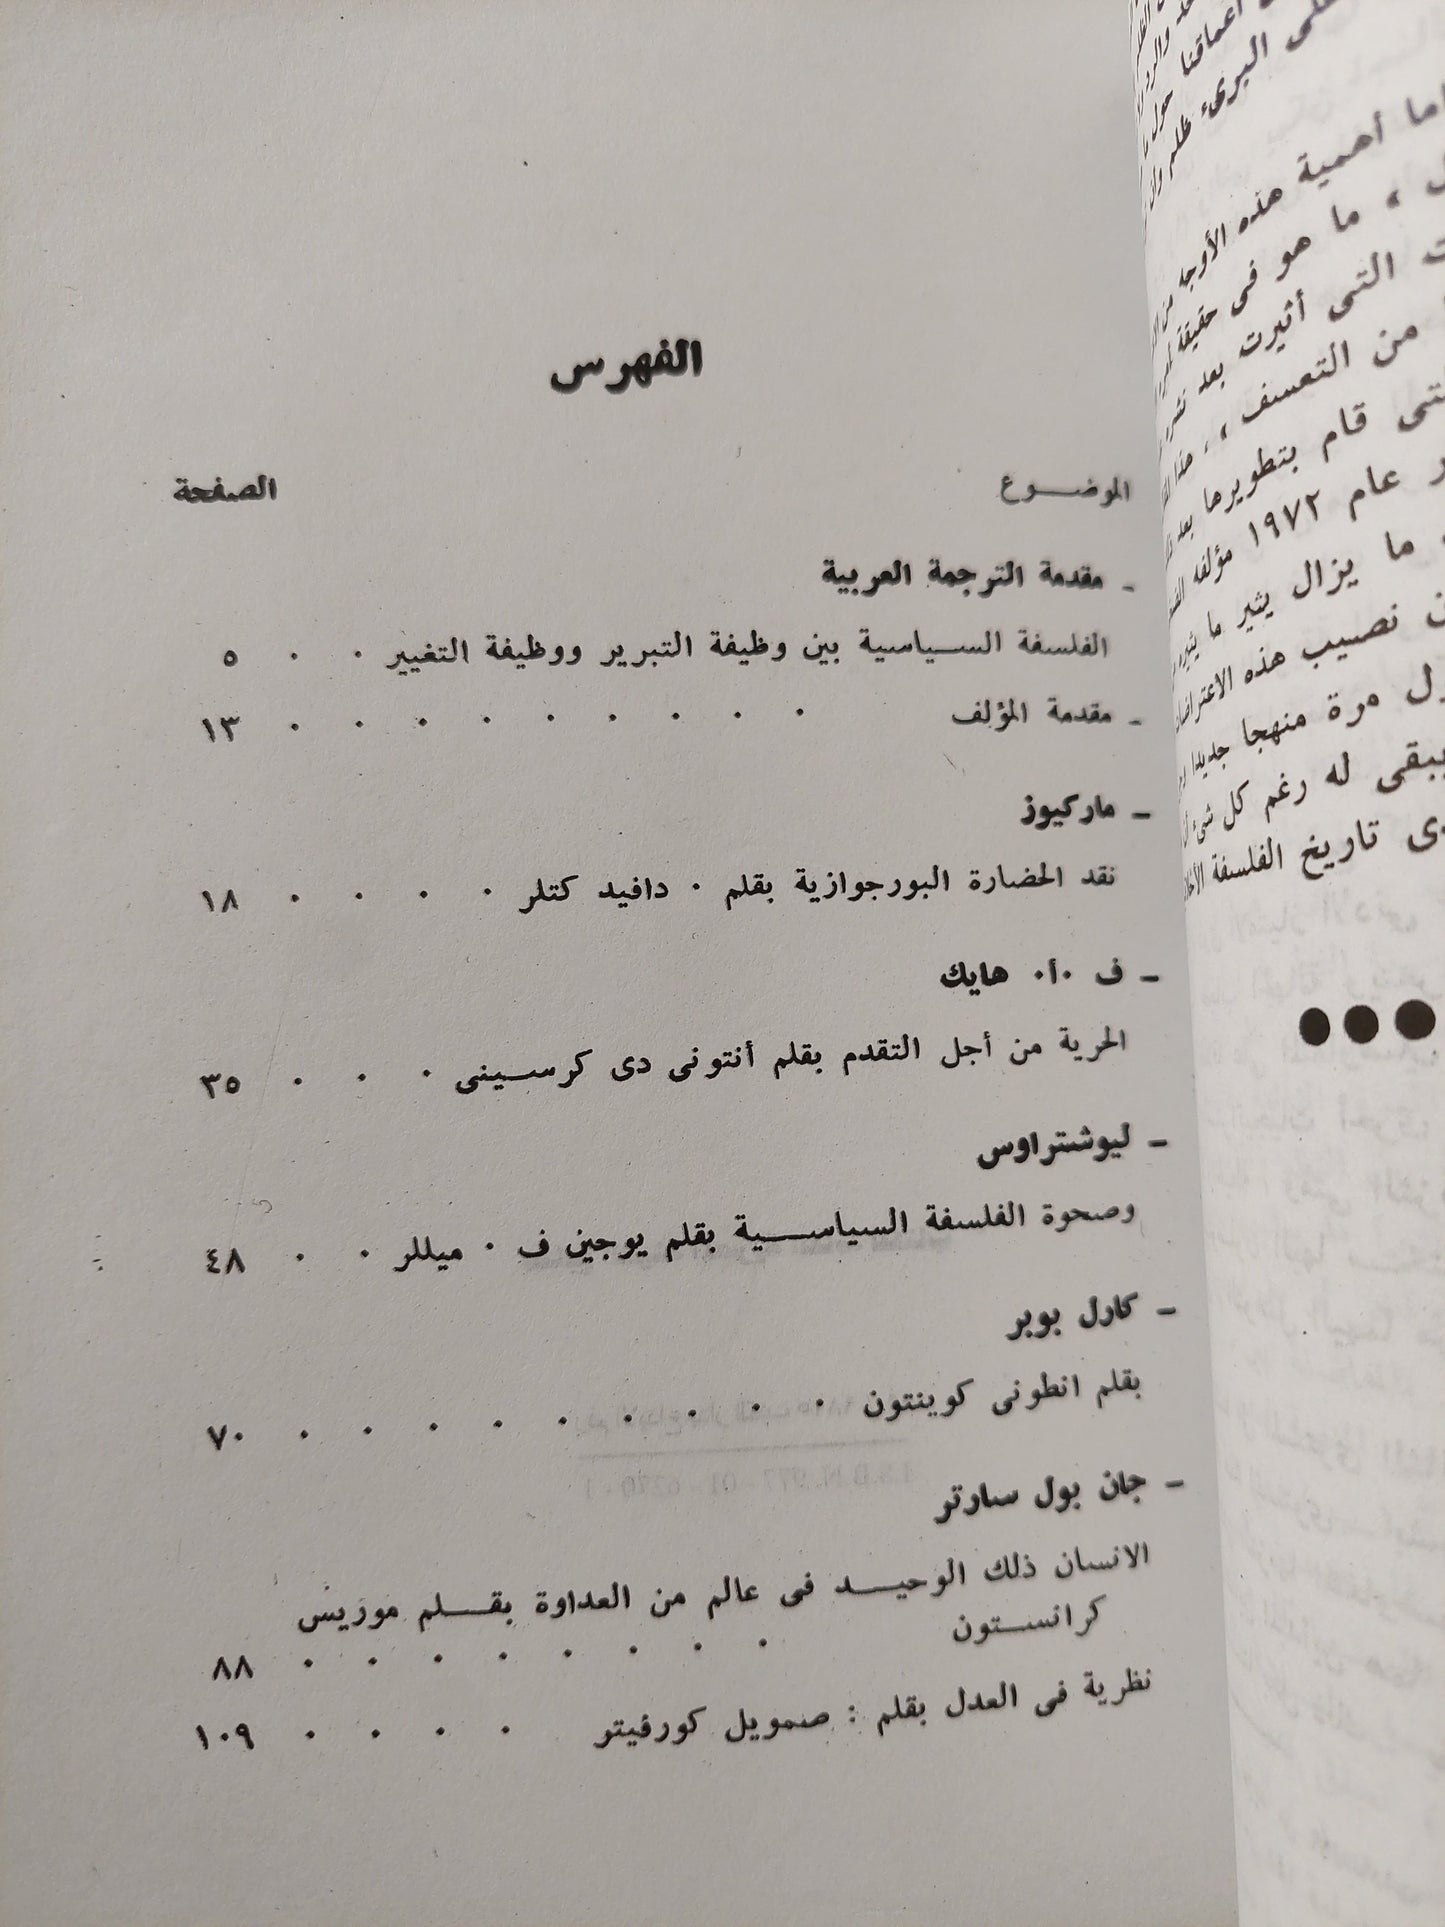 الفهرس
الموضـــوع الصفحة
ـ مقدمة الترجمة العربية
الفلسفة الســياسية بين وظيفة التبرير ووظيفة التغيير ٠ ٠ ٥
ـ مقدمة المؤلف ٠ ٠ ٠ ٠ ٠ ٠ ٠ ٠ ٠ ١٣
ـ ماركيوز
نقد الحضارة البورجوازية بقلم ٠ دافيد كتلر ٠ ٠ ٠ ٠ ١٨
ـ ف ٠أ٠ هايك
الحرية من أجل التقدم بقلم أنتونى دى كرســينى ٠ ٠ ٠ ٣٥
ـ ليوشتراوس
وصحوة الفلسفة السياســـية بقلم يوجين ف ٠ ميللر ٠ ٠ ٤٨
ـ كارل بوبر
بقلم انطونى كوينتون ٠ ٠ ٠ ٠ ٠ ٠ ٠ ٠ ٠ ٧٠
ـ جان بول سارتر
الانسان ذلك الوحيـــد فى عالم من العداوة بقـــلم موريس
كرانســتون ٠ ٠ ٠ ٠ ٠ ٠ ٠ ٠ ٨٨
نظرية فى العدل بقلم : صمويل كورفيتر ٠ ٠ ٠ ٠ ١٠٩
أعماقنا حول
على البرىء ظلم
اما أهمية هذه الأوجه من
، ما هو فى حقيقة
التى أثيرت بعد نشر
من التعسف ، ، هذا
قام بتطويرها بعد
عام ١٩٧٢ مؤلفه
ما يزال يثير ما يثيره
نصيب هذه الاعتراضات
مرة منهجا جديدا
يبقى له رغم كل شىء
تاريخ الفلسفة
●●●